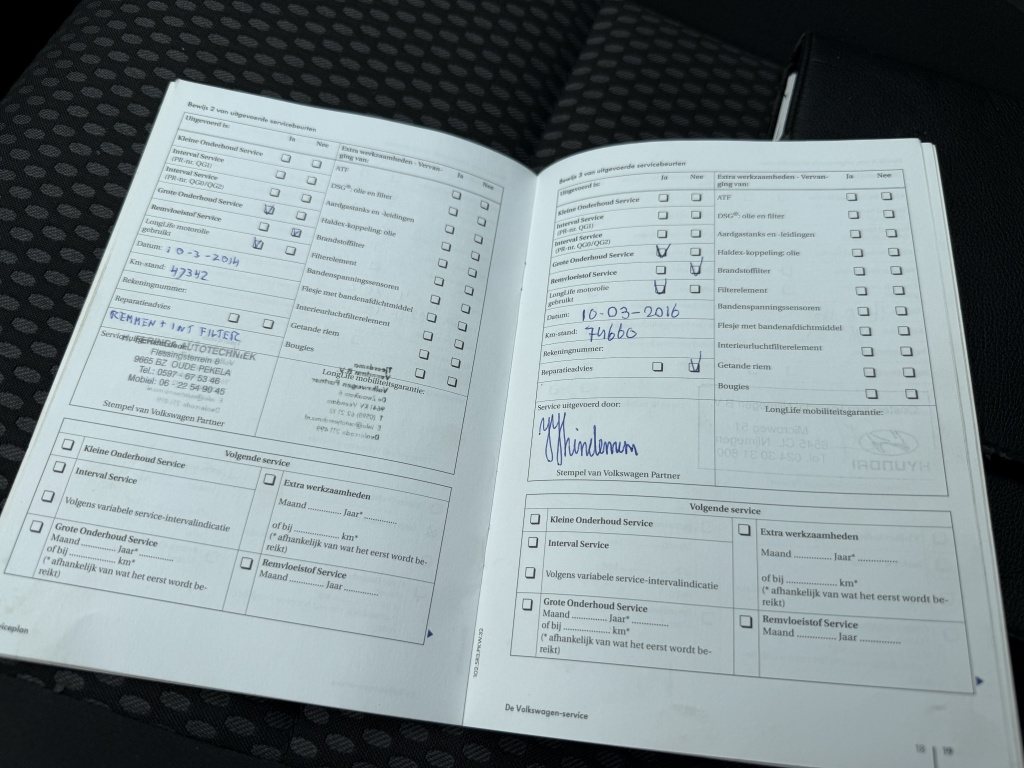 Bewijs 2 van uitgevoerde servicebeurten
Uitgevoerd is: Ja Nee
Kleine Onderhoud Service
Interval Service
(PR-nr. QG1)
Interval Service
(PR-nr. QG0/QG2)
Grote Onderhoud Service
Remvloeistof Service
LongLife motorolie
gebruikt
Datum: 10-3-2014
Km-stand: 47342
Rekeningnummer:
Reparatieadvies
REMMEN + INT FILTER
Extra werkzaamheden - Vervan-
ging van: Ja Nee
ATF
DSG®: olie en filter
Aardgastanks en -leidingen
Haldex-koppeling: olie
Brandstoffilter
Filterelement
Bandenspanningssensoren
Flesje met bandenafdichtmiddel
Interieurluchtfilterelement
Getande riem
Bougies
AUTOTECHNIEK
9665 BZ OUDE PEKELA
Tel.: 0597 - 67 53 46
Mobiel: 06 - 22 54 90 45
Stempel van Volkswagen Partner
LongLife mobiliteitsgarantie:
Volgende service
Kleine Onderhoud Service
Interval Service
Volgens variabele service-intervalindicatie
Grote Onderhoud Service
Maand ............ Jaar* ............
of bij ............ km*
(* afhankelijk van wat het eerst wordt be-
reikt)
Extra werkzaamheden
Maand ............ Jaar* ............
of bij ............ km*
(* afhankelijk van wat het eerst wordt be-
reikt)
Remvloeistof Service
Maand ............ Jaar ............
viceplan
Bewijs 3 van uitgevoerde servicebeurten
Uitgevoerd is: Ja Nee
Kleine Onderhoud Service
Interval Service
(PR-nr. QG1)
Interval Service
(PR-nr. QG0/QG2)
Grote Onderhoud Service
Remvloeistof Service
LongLife motorolie
gebruikt
Datum: 10-03-2016
Km-stand: 74660
Rekeningnummer:
Reparatieadvies
Extra werkzaamheden - Vervan-
ging van: Ja Nee
ATF
DSG®: olie en filter
Aardgastanks en -leidingen
Haldex-koppeling: olie
Brandstoffilter
Filterelement
Bandenspanningssensoren
Flesje met bandenafdichtmiddel
Interieurluchtfilterelement
Getande riem
Bougies
Service uitgevoerd door:
Stempel van Volkswagen Partner
LongLife mobiliteitsgarantie:
Volgende service
Kleine Onderhoud Service
Interval Service
Volgens variabele service-intervalindicatie
Grote Onderhoud Service
Maand ............ Jaar* ............
of bij ............ km*
(* afhankelijk van wat het eerst wordt be-
reikt)
Extra werkzaamheden
Maand ............ Jaar* ............
of bij ............ km*
(* afhankelijk van wat het eerst wordt be-
reikt)
Remvloeistof Service
Maand ............ Jaar ............
De Volkswagen-service
19